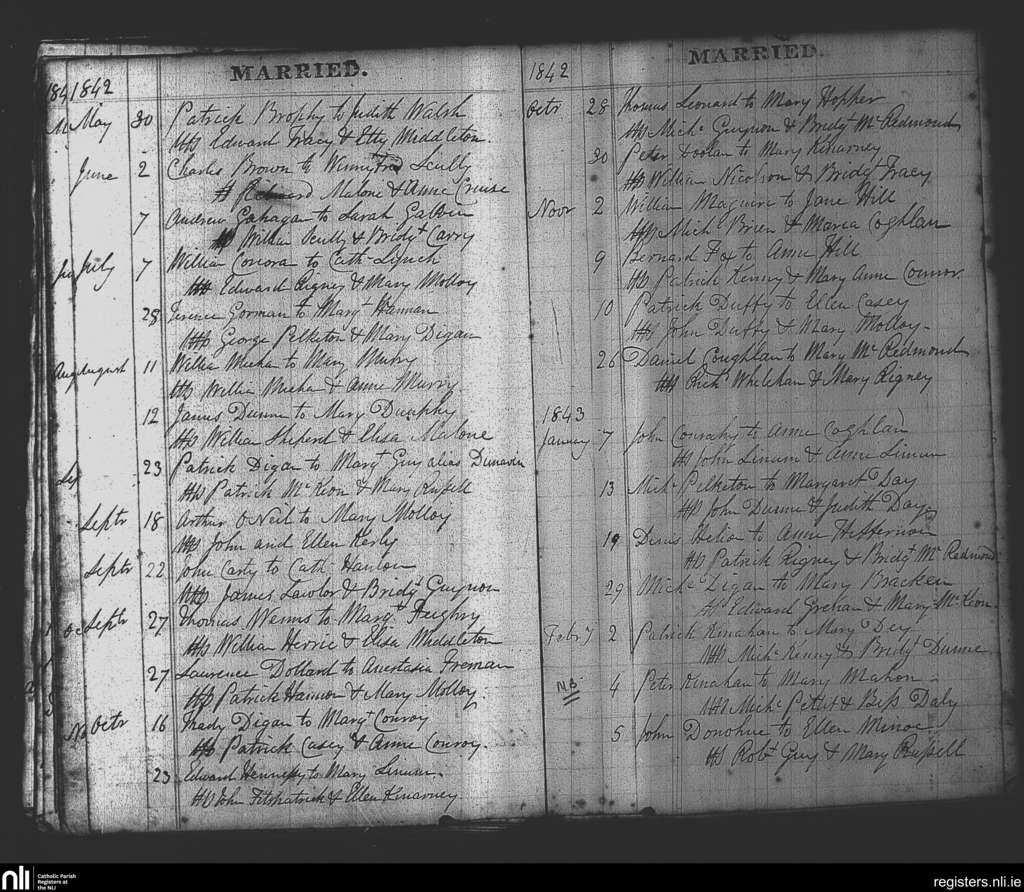 MARRIED.
1842
May 30 Patrick Brophy to Judith Walsh
Edward Tracy & Etty Middleton.
June 2 Charles Brown to Winnifred Scully
Malone & Anne Cruise
7 Andrew Gahagan to Sarah Galvin
William Scully & Bridgt Carry
July 7 William Conora to Cath Lynch
Edward Rigney & Mary Molloy
28 Terence Gorman to Margt Hannan
George Pelketon & Mary Digan
August 11 William Meehan to Mary Murry
William Meehan & Anne Murry
12 James Dunne to Mary Dunphy
William Sheperd & Elisa Malone
23 Patrick Digan to Margt Guy alias
Patrick McKeon & Mary Russell
Septr 18 Arthur O Neil to Mary Molloy
John and Ellen Kerly
Septr 22 John Carty to Cath Hanlon
James Lawlor & Bridgt Guynon
Septr 27 Thomas Wenns to Margt Feighry
William Herrie & Elisa Middleton
27 Laurence Dolland to Anestasia Freman
Patrick Hannon & Mary Molloy
Octr 16 Thady Digan to Margt Conroy
Patrick Casey & Anne Conroy.
23 Edward Hennessy to Mary Linum.
John Fitzpatrick & Ellen Kinarney
MARRIED.
1842
Octr 28 Thomas Leonard to Mary Hopker
Michl Guynon & Bridgt McRedmond
30 Peter Doolan to Mary Kinarney
William Nicolson & Bridgt Tracy
Novr 2 William Maguire to Jane Hill
Michl Brien & Maria Coghlan
9 Bernard Fox to Anne Hill
Patrick Kenny & Mary Anne Connor
10 Patrick Duffy to Ellen Casey
John Duffy & Mary Molloy
26 Daniel Coughlan to Mary McRedmond
Richd Whelehan & Mary Rigney
1843
January 7 John Conrahy to Anne Coghlan
John Linum & Anne Linum
13 Michl Pelketon to Margaret Day
John Dunne & Judith Day
19 Denis Helion to Anne
Patrick Rigney & Bridgt McRedmond
29 Michl Digan to Mary Bracken
Edward Grehan & Mary McKeon
Febry 2 Patrick Kinahan to Mary Dey
Michl Kenny & Bridgt Dunne
NB 4 Peter Kinahan to Mary Mahon
Michl Pettit & Bess Daly
5 John Donohue to Ellen Minoc
Robt Guy & Mary Russell
nli
Catholic Parish
Registers at
the NLI
registers.nli.ie